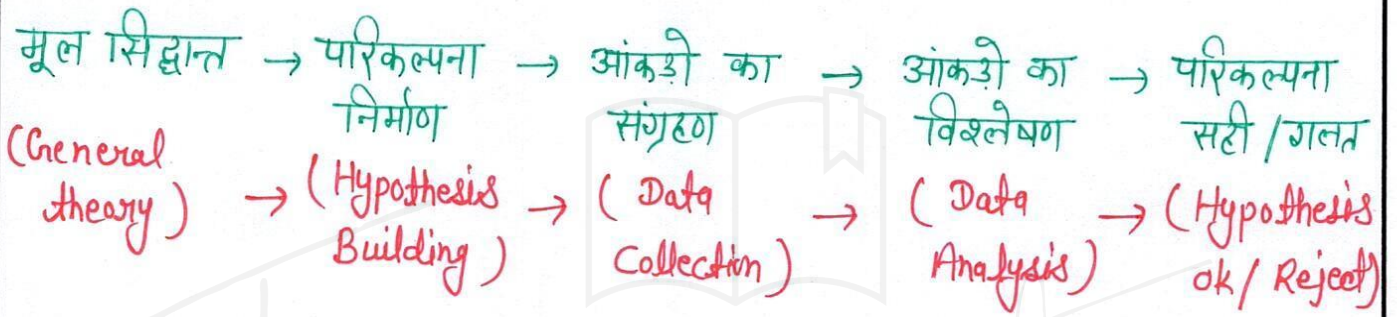 मूल सिद्धान्त → परिकल्पना → आंकडो का → आंकडो का → परिकल्पना
निर्माण संग्रहण विश्लेषण सही / गलत
(General theory) → (Hypothesis Building) → (Data Collection) → (Data Analysis) → (Hypothesis ok / Reject)